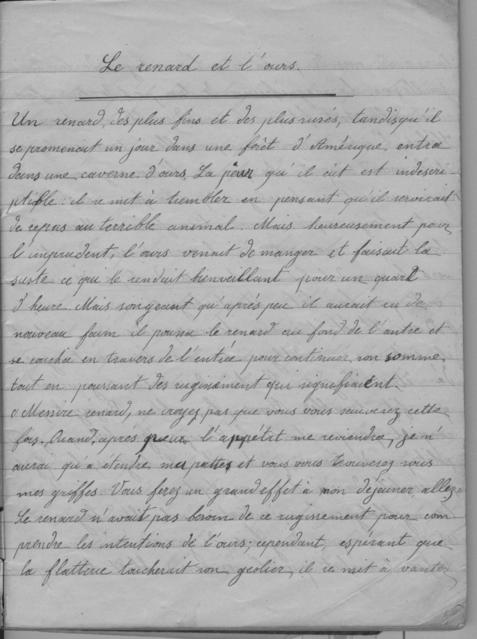 Le renard et l'ours.
Un renard, des plus fins et des plus rusés, tandisqu'il
se promenait un jour dans une forêt d'Amérique, entra
dans une caverne d'ours. La peur qu'il eut est indescri
ptible : il se met à trembler en pensant qu'il servirait
de repas au terrible animal. Mais heureusement pour
l'imprudent, l'ours venait de manger et faisait la
sieste ce qui le rendait bienveillant pour un quart
d'heure. Mais songeant qu'après peu il aurait eu de
nouveau faim il poussa le renard au fond de l'antre et
se coucha en travers de l'entrée pour continuer son somme,
tout en poussant des rugissement qui signifiaient.
O Messire renard, ne croyez pas que vous vous sauverez cette
fois. Quand, après l'appétit me reviendra, je n'
aurai qu'à étendre mes pattes et vous vous trouverez sous
mes griffes. Vous ferez un grand effet à mon déjeuner allez.
Le renard n'avait pas besoin de ce rugissement pour com
prendre les intentions de l'ours ; cependant, espérant que
la flatterie toucherait son geolier, il se met à vanter